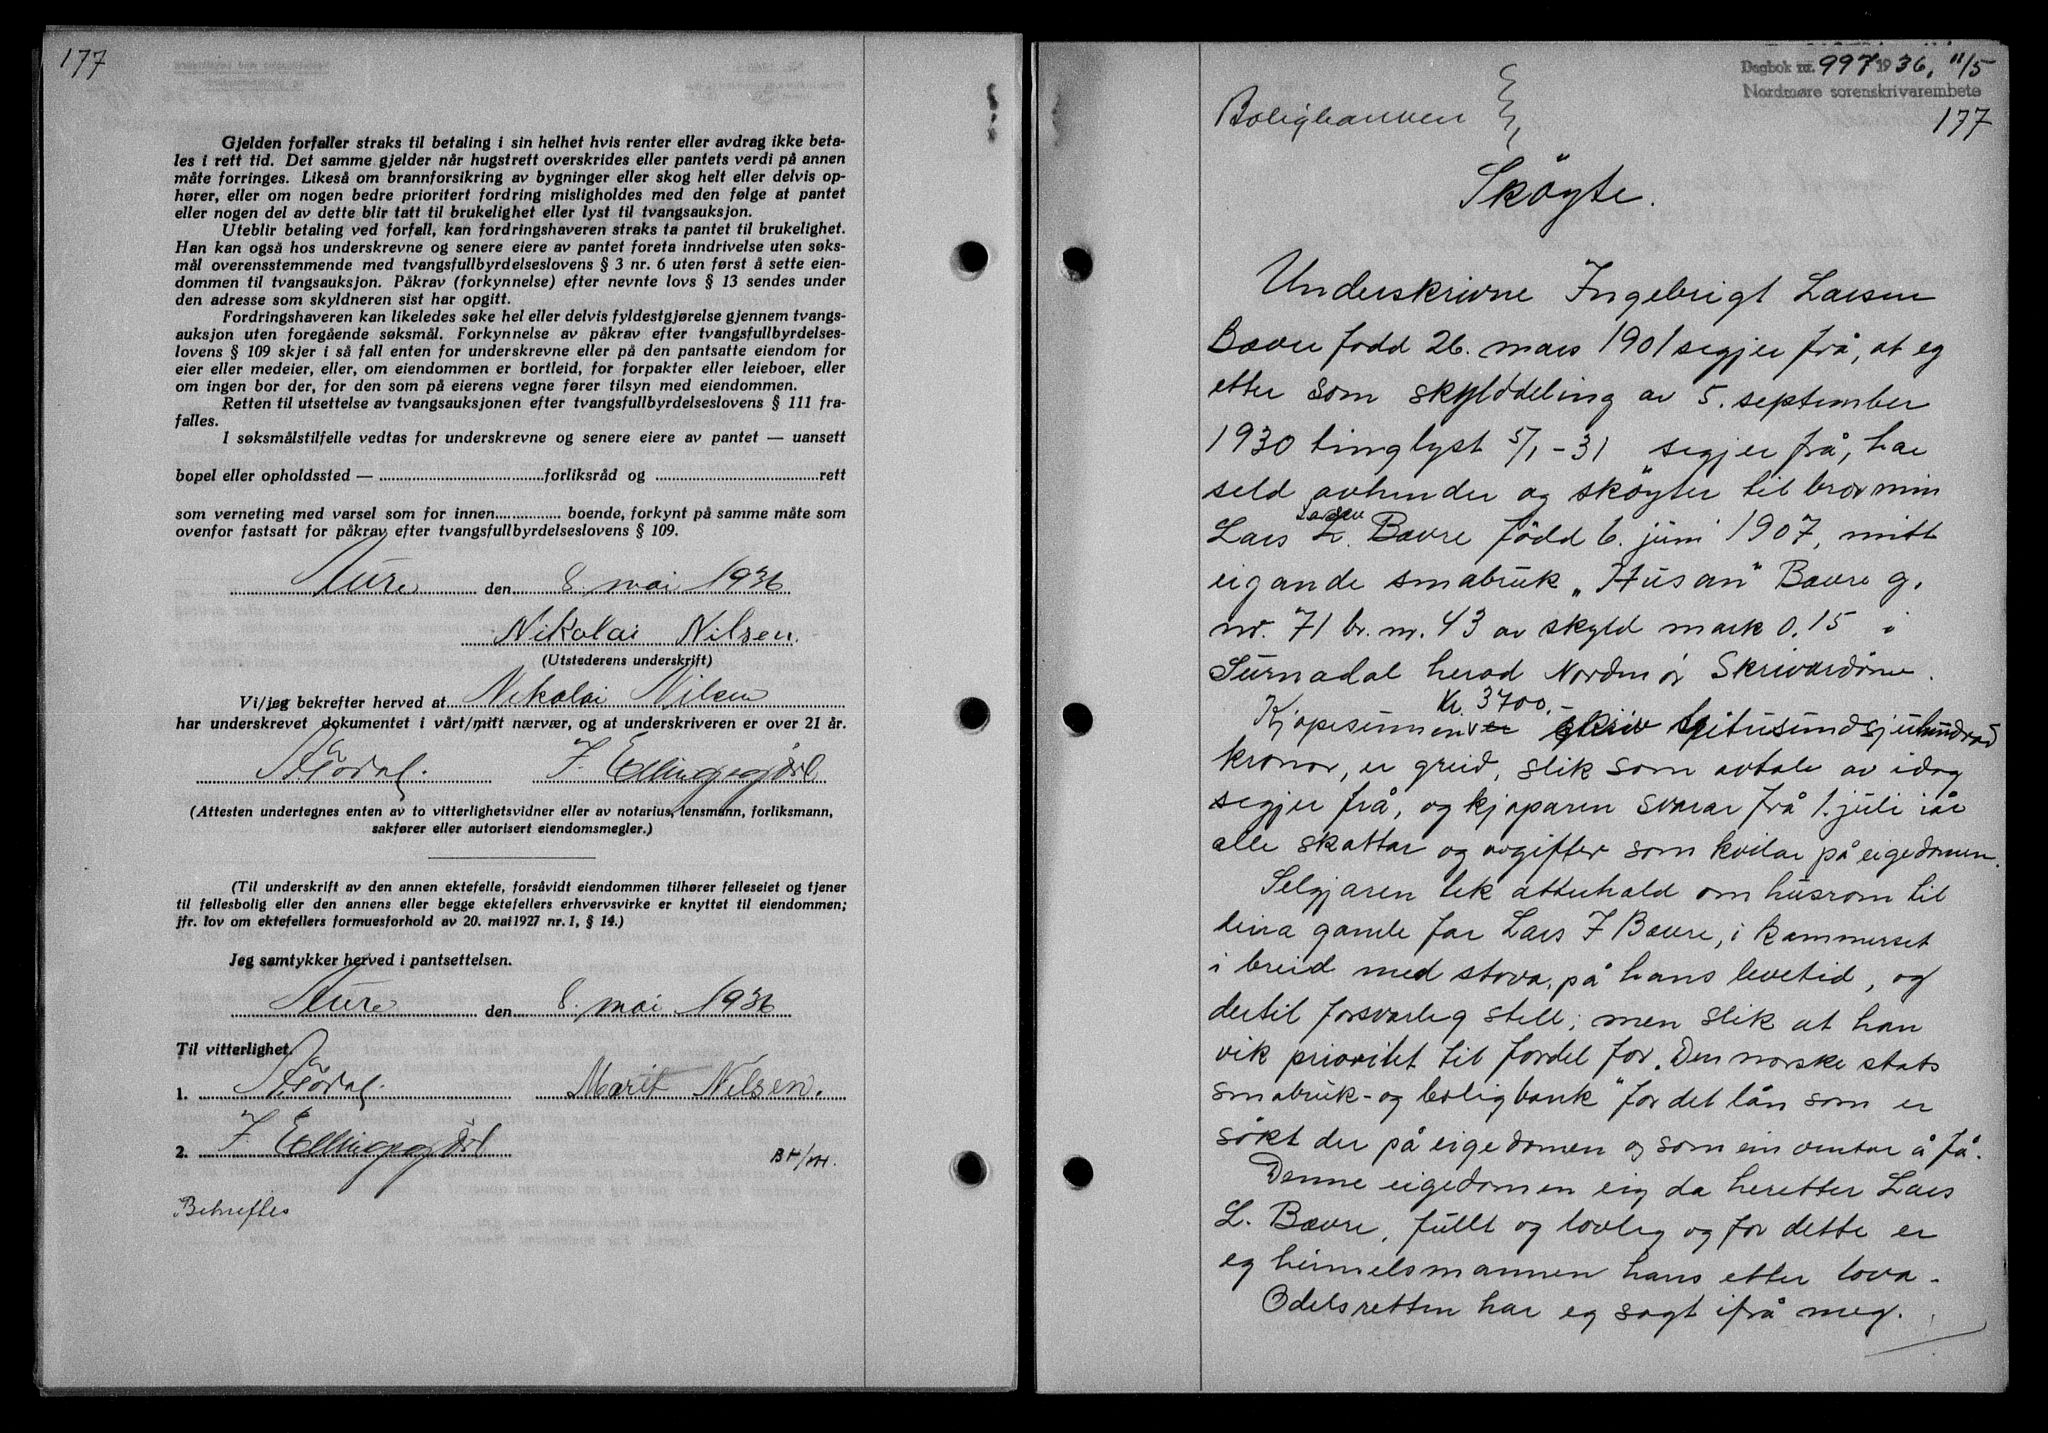 177
Gjelden forfaller straks til betaling i sin helhet hvis renter eller avdrag ikke beta-
les i rett tid. Det samme gjelder når hugstrett overskrides eller pantets verdi på annen
måte forringes. Likeså om brannforsikring av bygninger eller skog helt eller delvis op-
hører, eller om nogen bedre prioritert fordring misligholdes med den følge at pantet
eller nogen del av dette blir tatt til brukelighet eller lyst til tvangsauksjon.
Uteblir betaling ved forfall, kan fordringshaveren straks ta pantet til brukelighet.
Han kan også hos underskrevne og senere eiere av pantet foreta inndrivelse uten søks-
mål overensstemmende med tvangsfullbyrdelseslovens § 3 nr. 6 uten først å sette eien-
dommen til tvangsauksjon. Påkrav (forkynnelse) efter nevnte lovs § 13 sendes under
den adresse som skyldneren sist har opgitt.
Fordringshaveren kan likeledes søke hel eller delvis fyldestgjørelse gjennem tvangs-
auksjon uten foregående søksmål. Forkynnelse av påkrav efter tvangsfullbyrdelses-
lovens § 109 skjer i så fall enten for underskrevne eller på den pantsatte eiendom for
eier eller medeier, eller, om eiendommen er bortleid, for forpakter eller leieboer, eller
om ingen bor der, for den som på eierens vegne fører tilsyn med eiendommen.
Retten til utsettelse av tvangsauksjonen efter tvangsfullbyrdelseslovens § 111 fra-
falles.
I søksmålstilfelle vedtas for underskrevne og senere eiere av pantet — uansett
bopel eller opholdssted — forliksråd og rett
som verneting med varsel som for innen boende, forkynt på samme måte som
ovenfor fastsatt for påkrav efter tvangsfullbyrdelseslovens § 109.
Aure den 8. mai 1936
Nikolai Nilsen.
(Utstederens underskrift)
Vi/jeg bekrefter herved at Nikolai Nilsen
har underskrevet dokumentet i vårt/mitt nærvær, og at underskriveren er over 21 år.
(Attesten undertegnes enten av to vitterlighetsvidner eller av notarius, lensmann, forliksmann,
sakfører eller autorisert eiendomsmegler.)
(Til underskrift av den annen ektefelle, forsåvidt eiendommen tilhører felleseiet og tjener
til fellesbolig eller den annens eller begge ektefellers erhvervsvirke er knyttet til eiendommen;
jfr. lov om ektefellers formuesforhold av 20. mai 1927 nr. 1, § 14.)
Jeg samtykker herved i pantsettelsen.
Aure den 8. mai 1936
Til vitterlighet.
1. Marit Nilsen.
2.
Bekreftes
Dagbok nr. 997 1936, 11/5
Nordmøre sorenskrivarembete
177
Skøyte.
Underskrivne Ingebrigt Larsen
Bævre fødd 26. mars 1901 segjer frå, at eg
etter som skylddeling av 5. september
1930 tinglyst 5/1-31 segjer frå, har
seld avhender og skøyter til bror min
Larsen
Lars L. Bævre fødd 6. juni 1907, mitt
eigande småbruk „Husan" Bævre g.
nr. 71 br. nr. 43 av skyld mark 0.15 i
Surnadal herad Nordmør Skrivardøme.
Kr. 3700.-
Kjøpesummen skriv tritusundsjuhundrad
kronor, er greid, slik som avtale av idag
segjer frå, og kjøparen svarar frå 1. juli i år
alle skattar og avgifter som kvilar på eigedomen.
Selgjaren tek atterhald om husrom til
gamle far Lars I Bævre, i kammerset
i breid med stova, på hans levetid, og
dertil forsvarleg stell; men slik at han
vik prioritet til fordel for „Den norske stats
småbruk- og boligbank" for det lån som er
søkt der på eigedomen og som ein ventar å få.
Denne eigedomen eig da heretter Lars
L. Bævre, fullt og lovleg og for dette er
eg heimelsmannen hans etter lova.
Odelsretten har eg sagt ifrå meg.